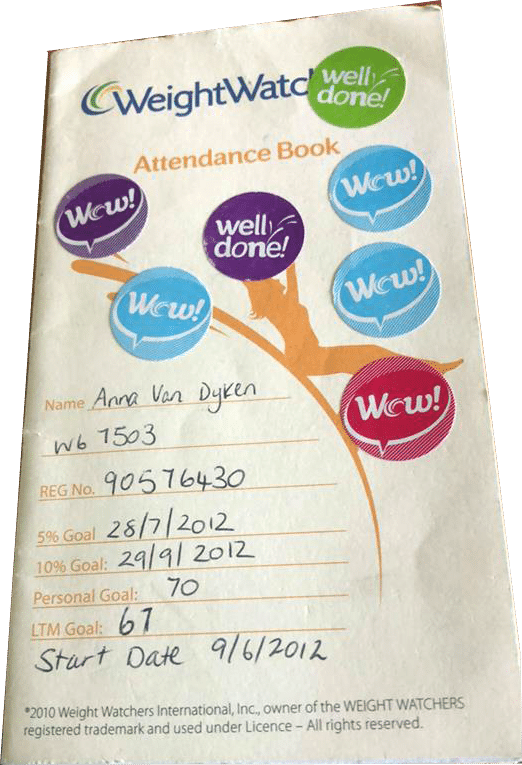 WeightWatc
well done!
Attendance Book
Wow!
Wow!
well done!
Wow!
Wow!
Wow!
Name Anna Van Dyken
W6 7503
REG No. 90576430
5% Goal 28/7/2012
10% Goal: 29/9/2012
Personal Goal: 70
LTM Goal: 67
Start Date 9/6/2012
*2010 Weight Watchers International, Inc., owner of the WEIGHT WATCHERS
registered trademark and used under Licence – All rights reserved.